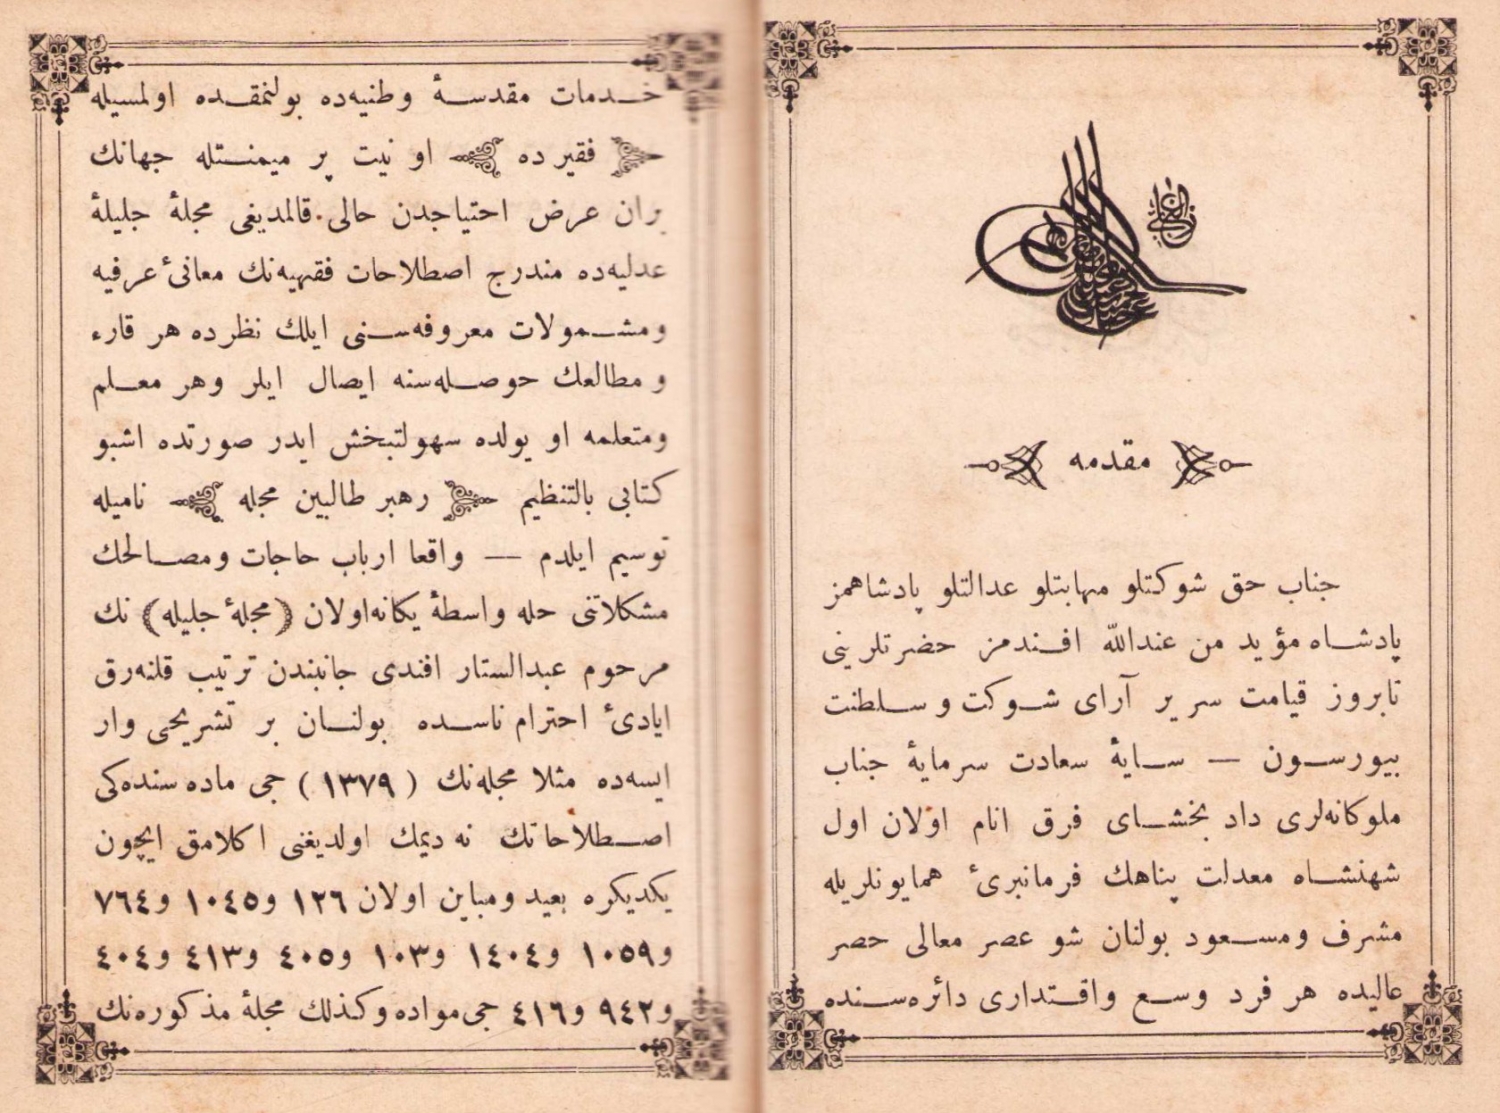 مقدمه
جناب حق شوكتلو مهابتلو عدالتلو پادشاهمز
پادشاه مؤید من عندالله افندمز حضرتلرینی
تابروز قیامت سریر آرای شوكت و سلطنت
بیورسون — سایهٔ سعادت سرمایهٔ جناب
ملوكانه‌لری داد بخشای فرق انام اولان اول
شهنشاه معدلت پناهك فرمانبریٔ همایونلریله
مشرف ومسعود بولنان شو عصر معالی حصر
عالیده هر فرد وسع واقتداری دائره‌سنده
خدمات مقدسهٔ وطنیه‌ده بولنمقده اولمسیله
فقیر ده او نیت پر میمنتله جهانك
عرض احتیاجدن حالی قالمدیغی مجلهٔ جلیلهٔ
عدلیه‌ده مندرج اصطلاحات فقهیه‌نك معانیٔ عرفیه
ومشمولات معروفه‌سنی ایلك نظرده هر قارء
و مطالعك حوصله‌سنه ایصال ایلر وهر معلم
ومتعلمه او یولده سهولتبخش ایدر صورتده اشبو
كتابی بالتنظیم رهبر طالبین مجله نامیله
توسیم ایلدم — واقعا ارباب حاجات ومصالحك
مشكلاتنی حله واسطهٔ یكانه اولان (مجلهٔ جلیله) نك
مرحوم عبدالستار افندی جانبندن ترتیب قلنه‌رق
ایادیٔ احترام ناسده بولنان بر تشریحی وار
ایسه‌ده مثلا مجله‌نك (١٣٧٩) جی ماده سنده‌كی
اصطلاحاتك نه دیمك اولدیغنی اكلامق ایچون
یكدیكره بعید ومباین اولان ١٢٦ و١٠٤٥ و٧٦٤
و١٠٥٩ و١٤٠٤ و١٠٣ و٤٠٥ و٤١٣ و٤٠٤
و٩٤٢ و٤١٦ جی مواده وكذلك مجلهٔ مذكوره‌نك